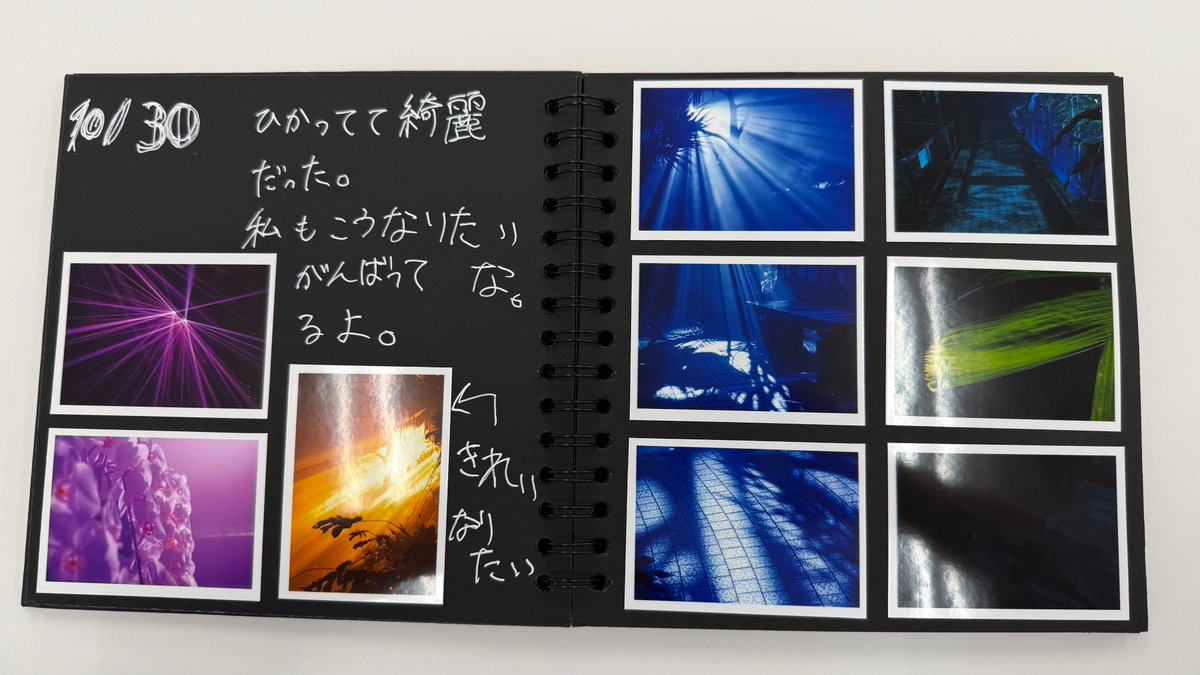 10/30
ひかってて綺麗
だった。
私もこうなりたい
な。
がんばって
るよ。
←
きれい
なり
たい